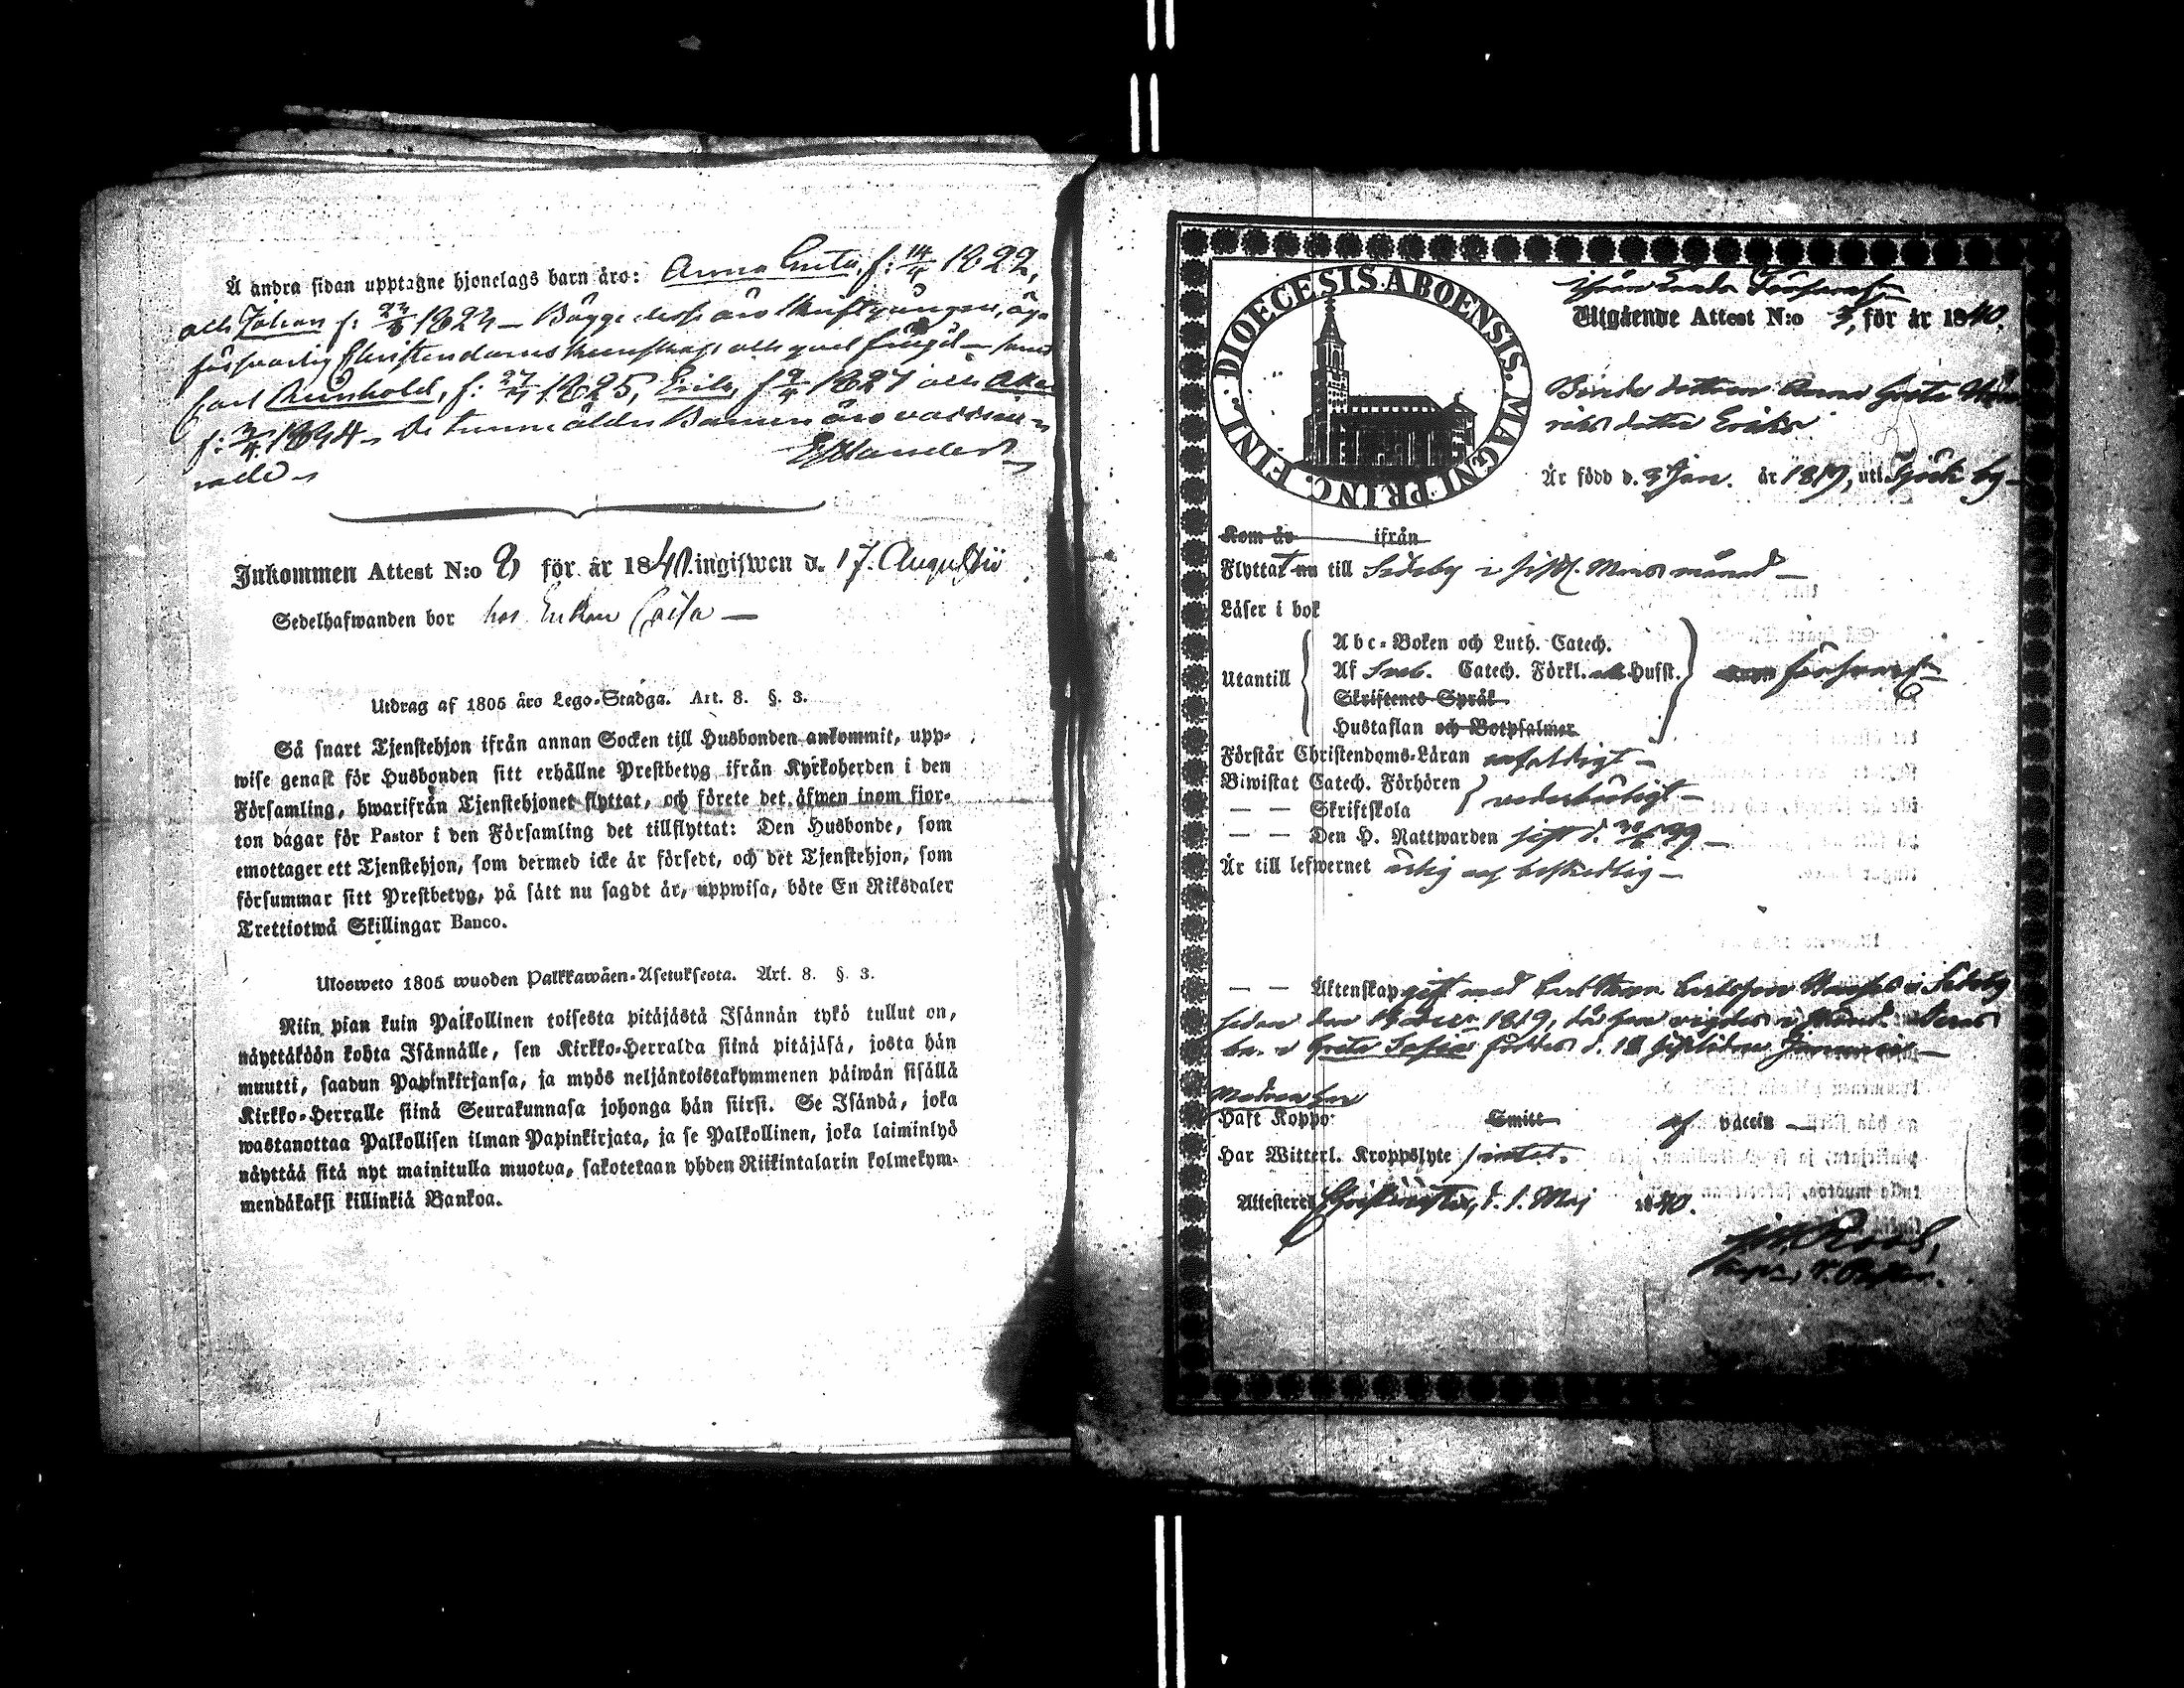 Å andra sidan upptagne hjonelags barn äro: Anna Greta, f: 14/4 1822,
och Johan f: 1824 – Bägge desse äro Skriftgångne, äga
försvarlig Christendoms kunskap och god frägd – samt
Carl Reinhold, f: 27/ 1825, Erik, f 9/ 1827 och
f: 3/4 1834 – De äldre Barnen äro vaccine-
rade –
Inkommen Attest N:o 9 för år 1840. ingifwen d. 17. Augusti
Sedelhafwanden bor hos Enkan Caisa –
Utdrag af 1805 års Lego-Stadga. Art. 8. §. 3.
Så snart Tjenstehjon ifrån annan Socken till Husbonden ankommit, upp-
wise genast för Husbonden sitt erhållne Prestbetyg ifrån Kyrkoherden i den
Församling, hwarifrån Tjenstehjonet flyttat, och förete det äfwen inom fjor-
ton dagar för Pastor i den Församling det tillflyttat: Den Husbonde, som
emottager ett Tjenstehjon, som dermed icke är försedt, och det Tjenstehjon, som
försummar sitt Prestbetyg, på sätt nu sagdt är, uppwisa, böte En Riksdaler
Trettiotwå Skillingar Banco.
Ulosweto 1805 wuoden Palkkawäen-Asetuksesta. Art. 8. §. 3.
Niin pian kuin Palkollinen toisesta pitäjästä Isännän tykö tullut on,
näyttäköön kohta Isännälle, sen Kirkko-Herralda siinä pitäjäsä, josta hän
muutti, saadun Papinkirjansa, ja myös neljäntoistakymmenen päiwän sisällä
Kirkko-Herralle siinä Seurakunnasa johonga hän siirsi. Se Isändä, joka
wastanottaa Palkollisen ilman Papinkirjata, ja se Palkollinen, joka laiminlyö
näyttää sitä nyt mainitulla muotoa, sakotetaan yhden Riikintalarin kolmekym-
mendäkaksi killinkiä Bankoa.
DIOECESIS ABOENSIS. MAGNI PRINC. FINL.
ifrån
Utgående Attest N:o 3, för år 1840.
Bonde dottren Anna Greta Hen-
riks dotter
Är född d. 3 Jan. år 1819, uti by
Kom år ifrån
Flyttat nu till Sideby i sistl. Mars månad –
Läser i bok
Abc-Boken och Luth. Catech.
Utantill Af Sveb. Catech. Förkl. och Hufst. försvarl.
Skriftenes Språk
Hustaflan och Botpsalmer
Förstår Christendoms-Läran enfaldigt –
Biwistat Catech. Förhören
– – Skriftskola vederbörligt –
– – Den H. Nattwarden sist d. 30/6 39 –
Är till lefwernet ärlig och beskedlig –
– – Äktenskap gift med Carlsson i Sideby
sedan den 1819, då hon vigdes i Deras
Greta Sofia föddes d. 18 sistlidne Januari –
Modren har
Haft Koppor Smitt af vaccin –
Har Witterl. Kroppslyte intet.
Attesteras Christinestad, d. 1. Maj 1840.
Roos,